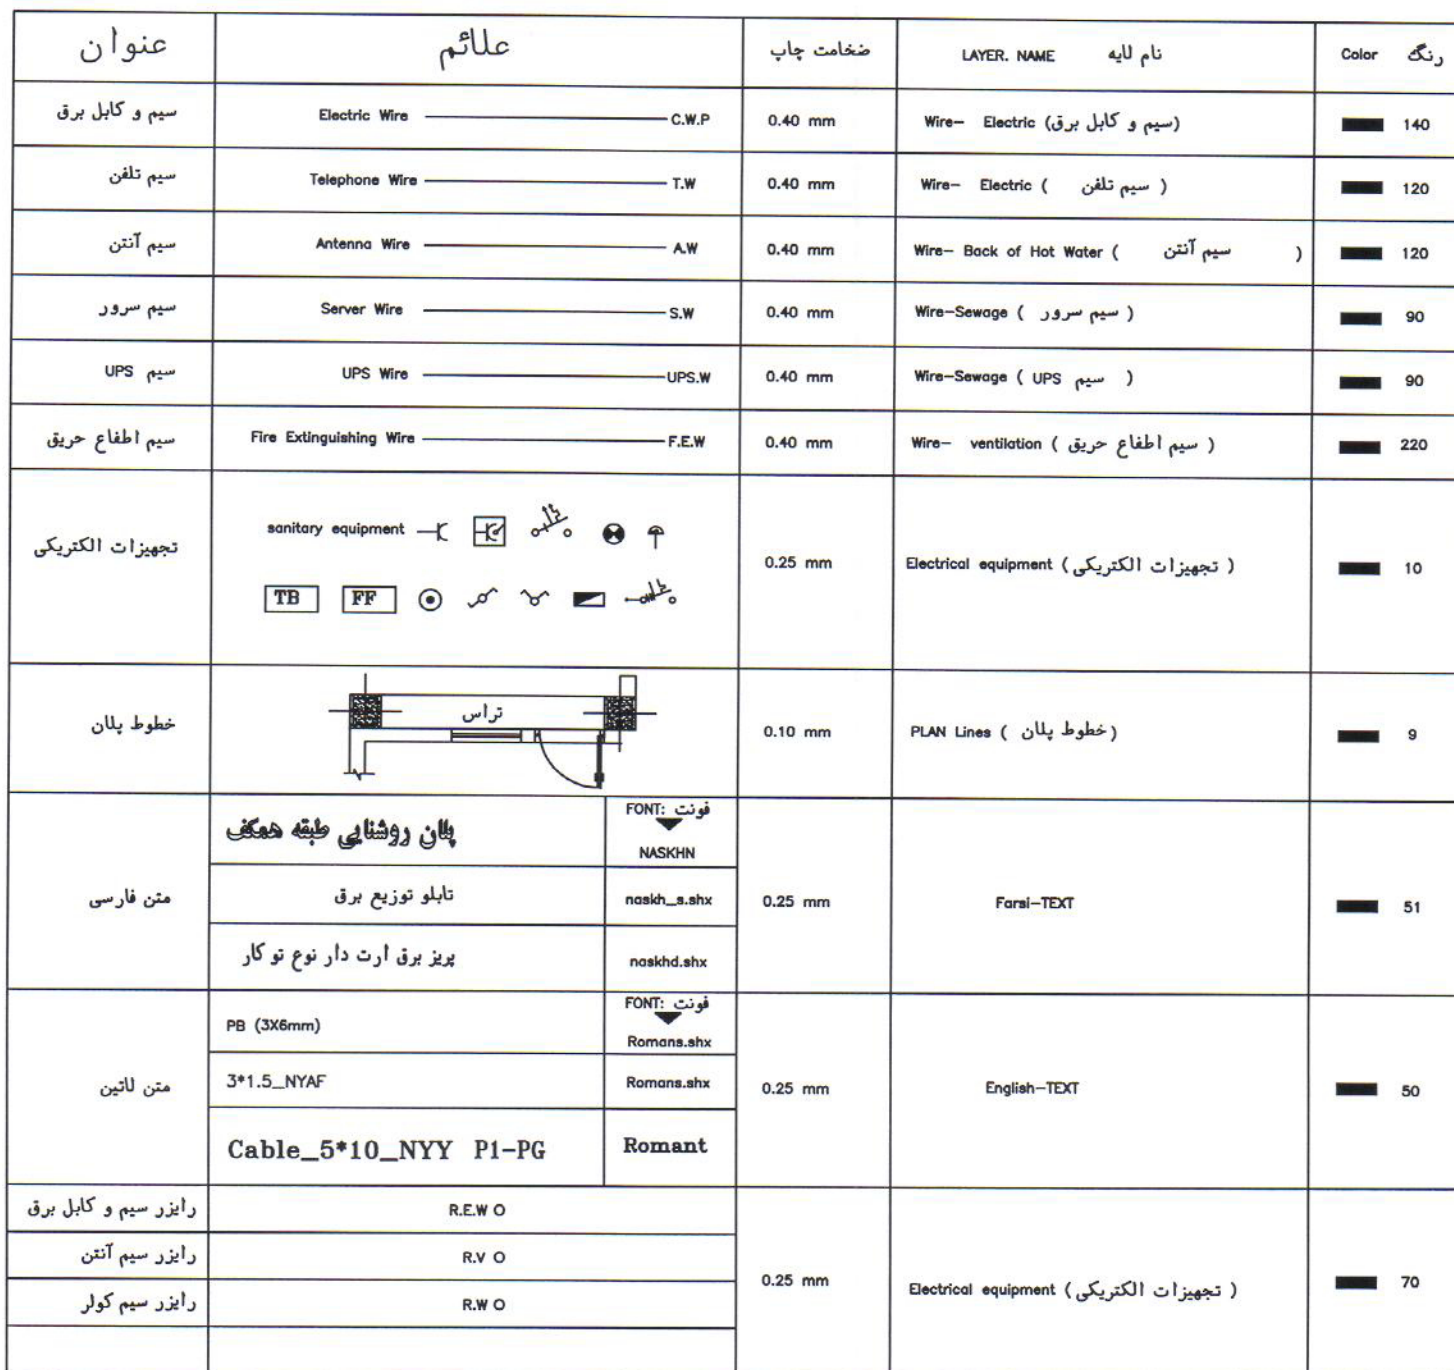 عنوان	علائم	ضخامت چاپ	LAYER. NAME نام لایه	Color رنگ
سیم و کابل برق	Electric Wire C.W.P	0.40 mm	Wire- Electric (سیم و کابل برق)	140
سیم تلفن	Telephone Wire T.W	0.40 mm	Wire- Electric ( سیم تلفن )	120
سیم آنتن	Antenna Wire A.W	0.40 mm	Wire- Back of Hot Water ( سیم آنتن )	120
سیم سرور	Server Wire S.W	0.40 mm	Wire-Sewage ( سیم سرور )	90
سیم UPS	UPS Wire UPS.W	0.40 mm	Wire-Sewage ( سیم UPS )	90
سیم اطفاع حریق	Fire Extinguishing Wire F.E.W	0.40 mm	Wire- ventilation ( سیم اطفاع حریق )	220
تجهیزات الکتریکی	sanitary equipment	0.25 mm	Electrical equipment ( تجهیزات الکتریکی )	10
TB FF
خطوط پلان	تراس	0.10 mm	PLAN Lines ( خطوط پلان )	9
متن فارسی	پلان روشنایی طبقه همکف	فونت :FONT	NASKHN	0.25 mm	Farsi-TEXT	51
تابلو توزیع برق	naskh_s.shx
پریز برق ارت دار نوع تو کار	naskhd.shx
متن لاتین	PB (3X6mm)	فونت :FONT	Romans.shx	0.25 mm	English-TEXT	50
3*1.5_NYAF	Romans.shx
Cable_5*10_NYY P1-PG	Romant
رایزر سیم و کابل برق	R.E.W O	0.25 mm	Electrical equipment ( تجهیزات الکتریکی )	70
رایزر سیم آنتن	R.V O
رایزر سیم کولر	R.W O